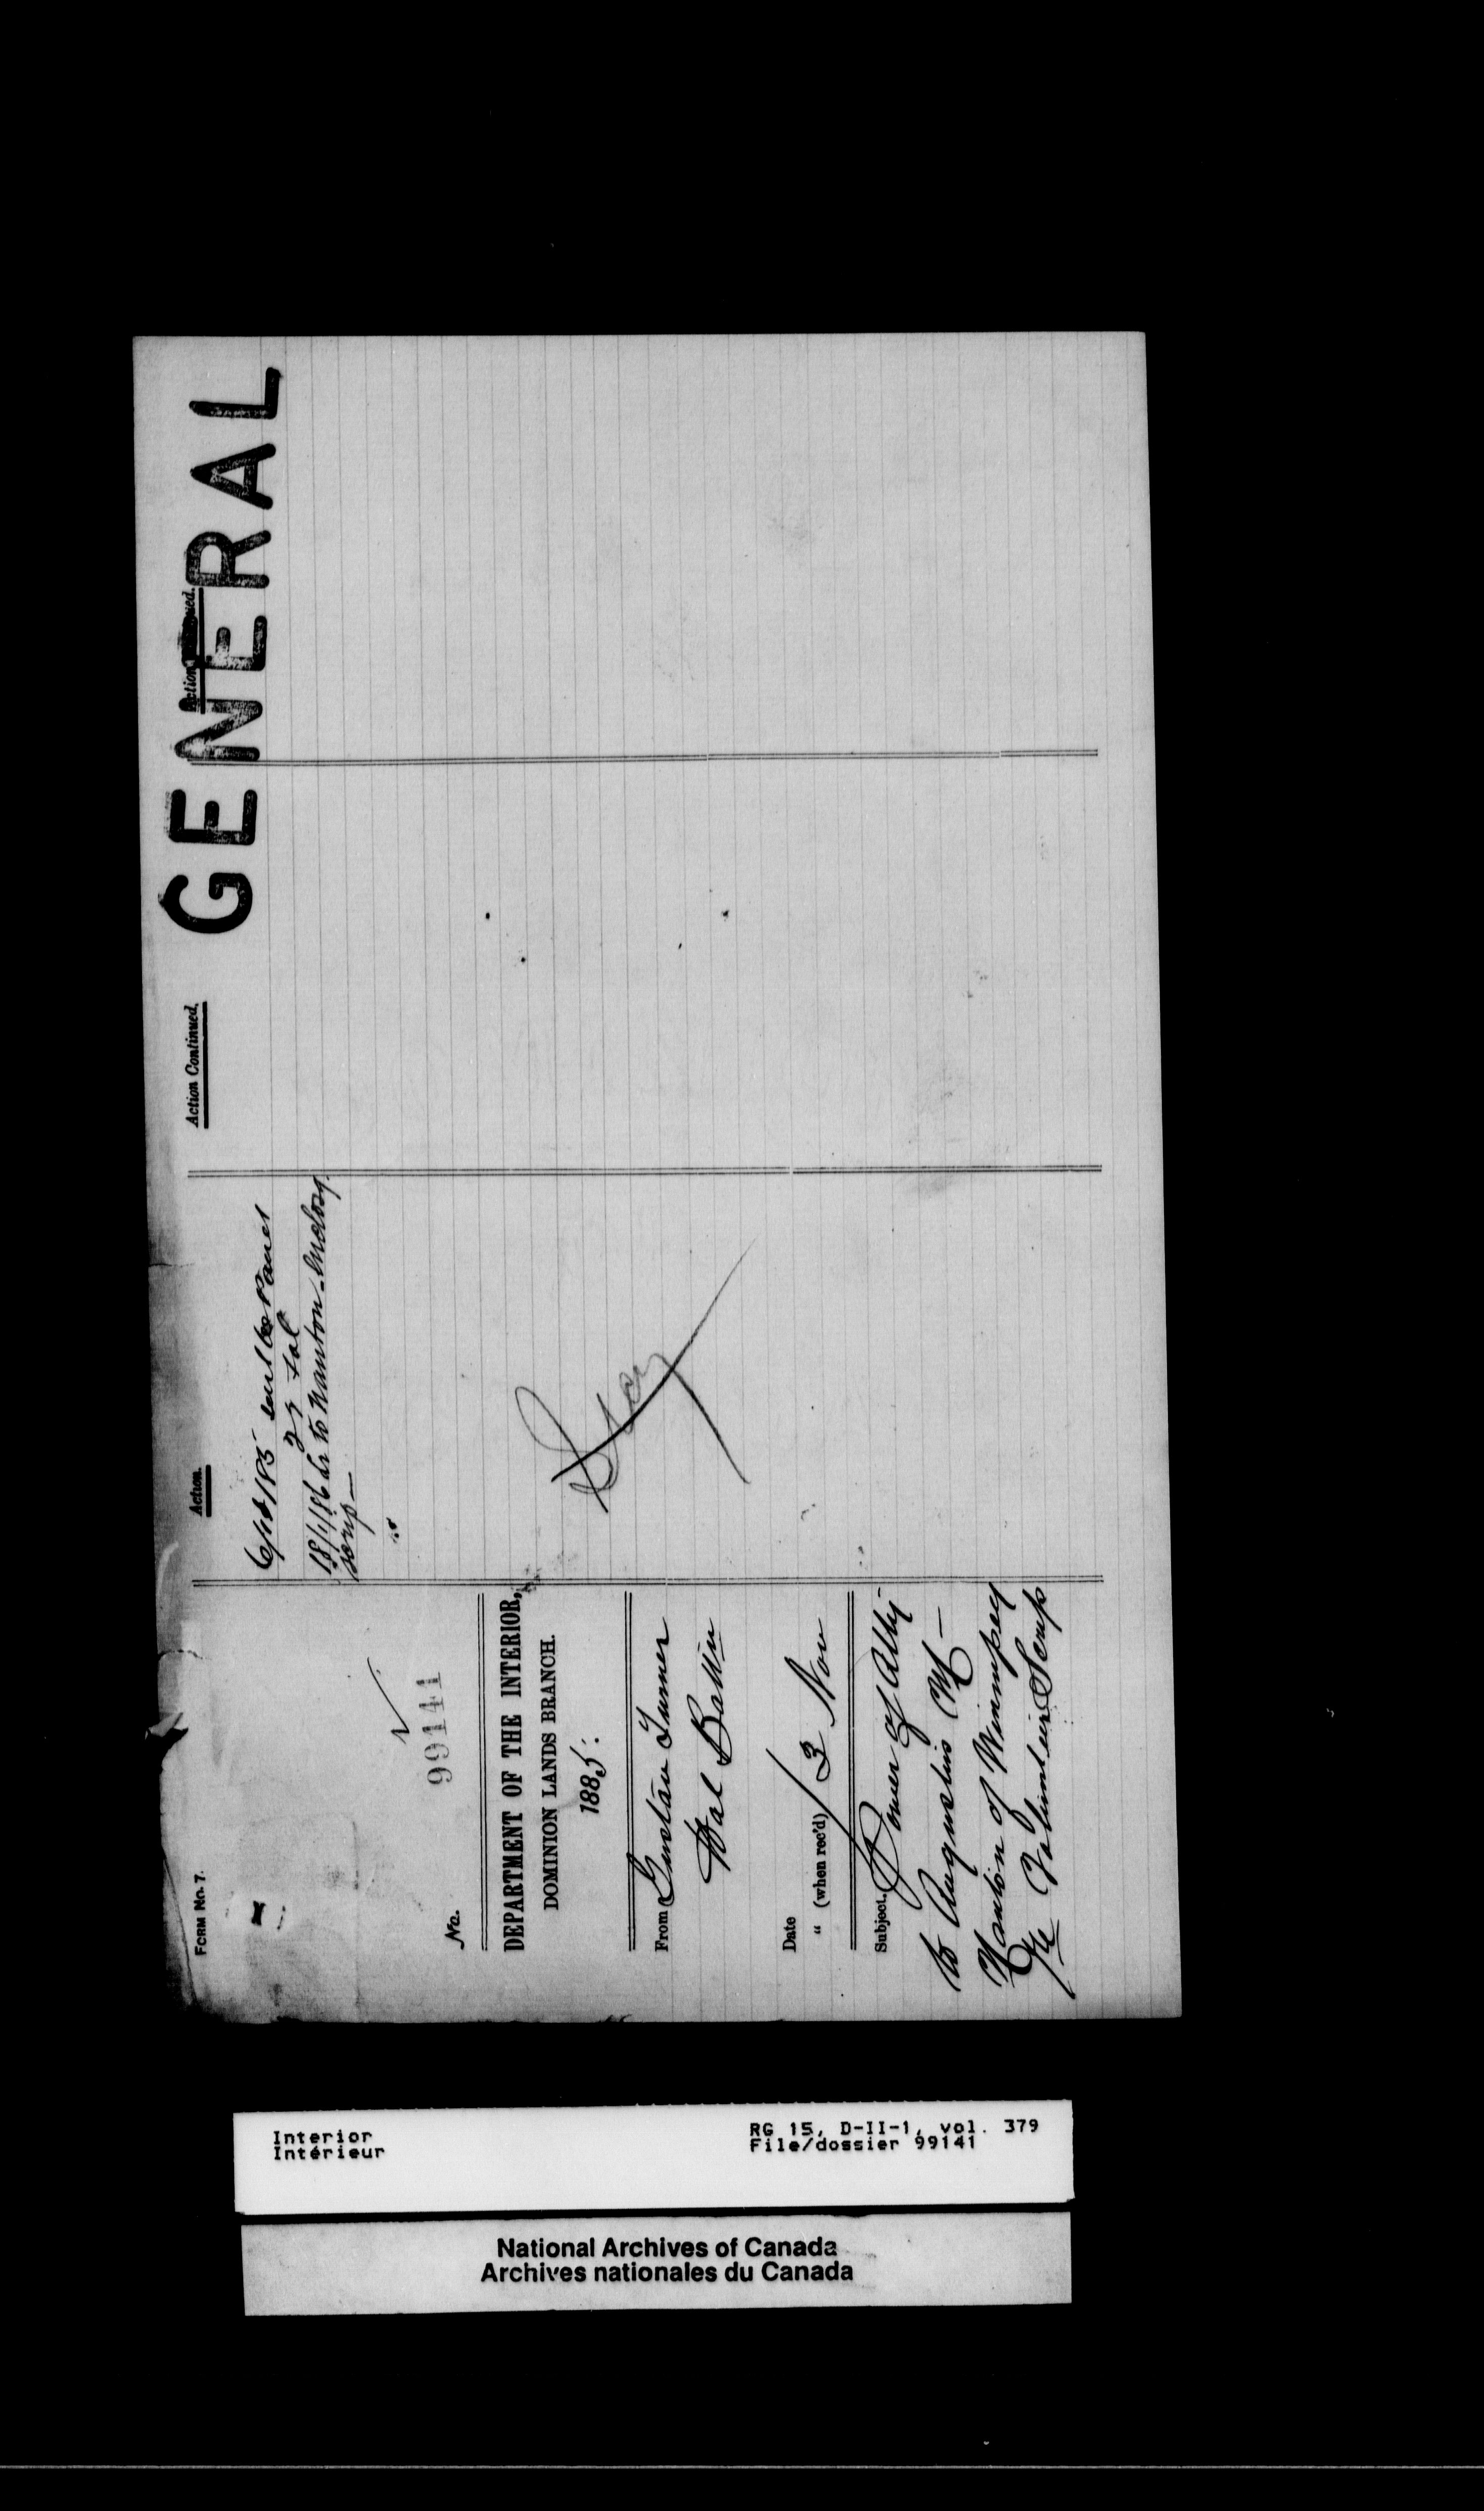 FORM No. 7.
No. 99141
DEPARTMENT OF THE INTERIOR,
DOMINION LANDS BRANCH.
1885.
From Gustav Turner
Hal Battn
Date
" (when rec'd) 3 Nov
Subject. Power of Atty
to Augustus M
Nanton of Winnipeg
re Volunteer Scrip
Action.
18/1/86 Lr to Nanton - Enclosg
scrip —
Action Continued.
Action Continued.
GENERAL
Interior
Intérieur
RG 15, D-II-1, vol. 379
File/dossier 99141
National Archives of Canada
Archives nationales du Canada